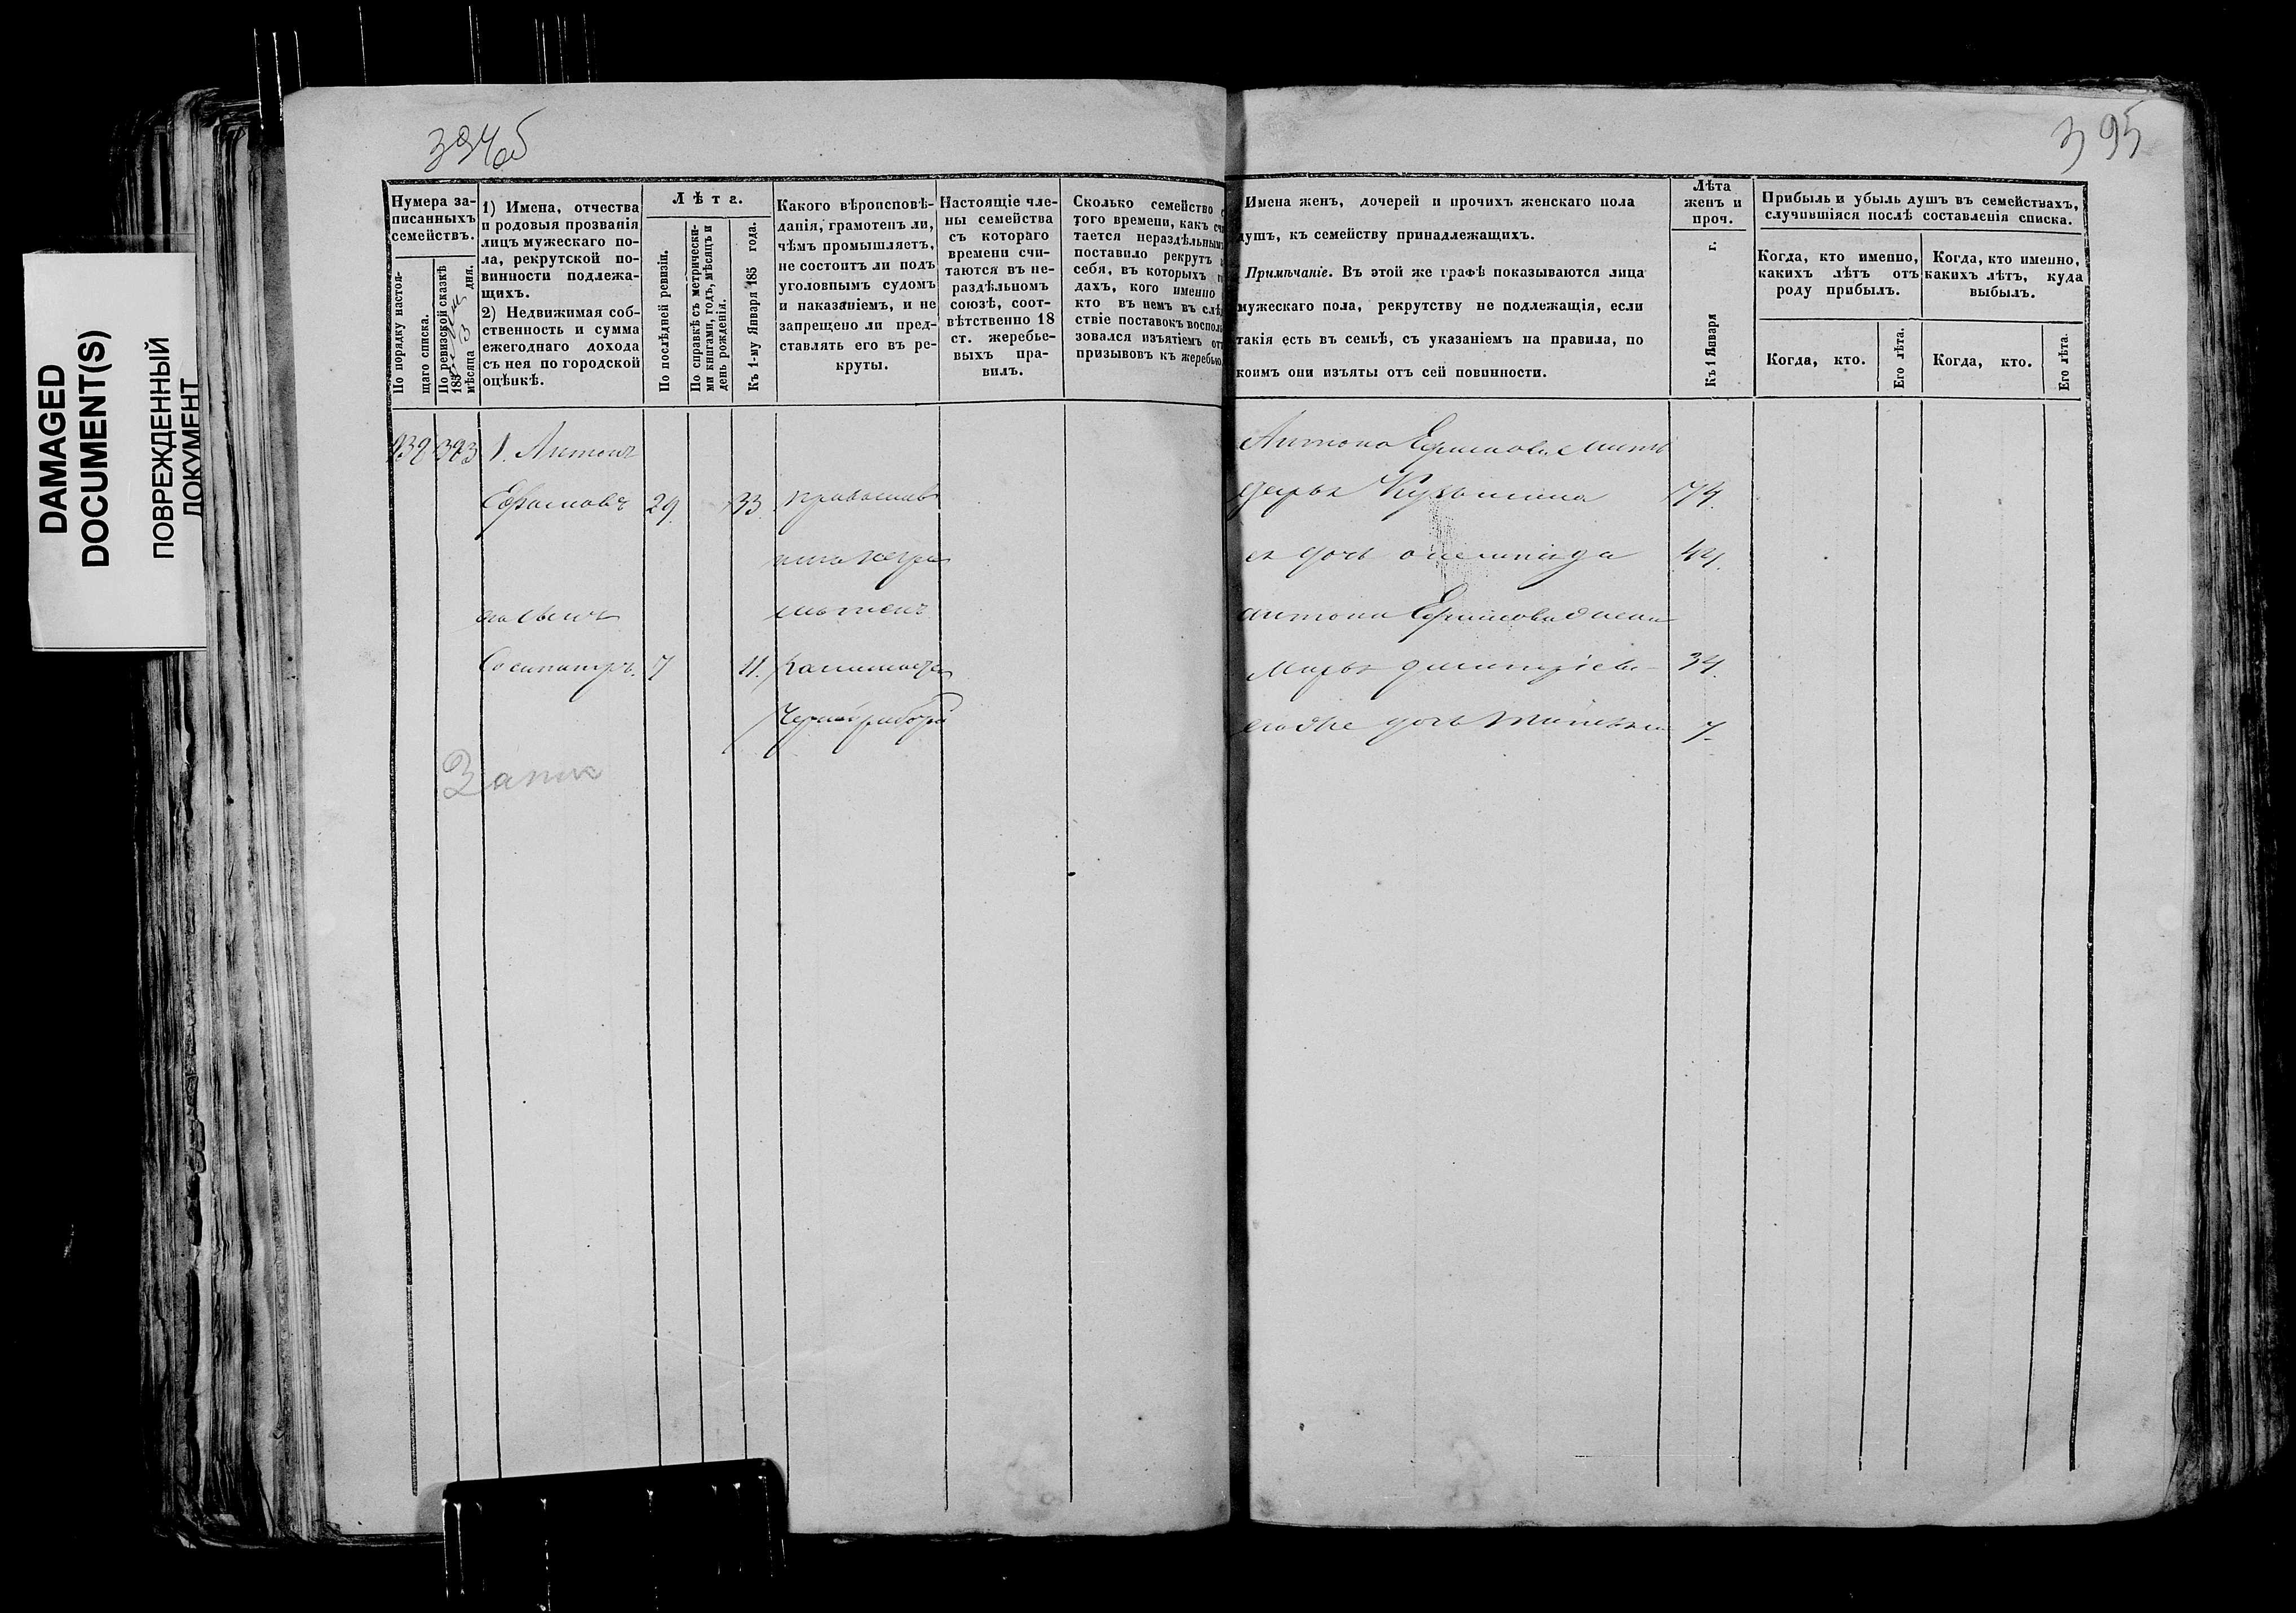 DAMAGED
DOCUMENT(S)
ПОВРЕЖДЕННЫЙ
ДОКУМЕНТ
394об
Нумера за-
писанныхъ
семействъ.
По порядку настоя-
щаго списка.
По ревизской сказкѣ
185
мѣсяца дня.
1) Имена, отчества
и родовыя прозванія
лицъ мужескаго по-
ла, рекрутской по-
винности подлежа-
щихъ.
2) Недвижимая соб-
ственность и сумма
ежегоднаго дохода
съ нея по городской
оцѣнкѣ.
Лѣта.
По послѣдней ревизіи.
По справкѣ съ метрически-
ми книгами, годъ, мѣсяцъ и
день рожденія.
Къ 1-му Января 185 года.
Какого вѣроисповѣ-
данія, грамотенъ ли,
чѣмъ промышляетъ,
не состоитъ ли подъ
уголовнымъ судомъ
и наказаніемъ, и не
запрещено ли пред-
ставлять его въ ре-
круты.
Настоящіе чле-
ны семейства
съ котораго
времени счи-
таются въ не-
раздѣльномъ
союзѣ, соот-
вѣтственно 18
ст. жеребье-
выхъ пра-
вилъ.
Сколько семейство с
того времени, какъ счи
тается нераздѣльнымъ
поставило рекрутъ
себя, въ которыхъ г
дахъ, кого именно
кто въ немъ въ слѣ
ствіе поставокъ воспол
зовался изъятіемъ от
призывовъ къ жеребью
939 393 1. Антонъ
Ефимовъ 29 33 православ
его сынъ
Сосипатръ. 7 11.
Чернорабоч
395
Имена женъ, дочерей и прочихъ женскаго пола
душъ, къ семейству принадлежащихъ.
Примѣчаніе. Въ этой же графѣ показываются лица
мужескаго пола, рекрутству не подлежащія, если
такія есть въ семьѣ, съ указаніемъ на правила, по
коимъ они изъяты отъ сей повинности.
Лѣта
женъ и
проч.
Къ 1 Января г.
Прибыль и убыль душъ въ семействахъ,
случившіяся послѣ составленія списка.
Когда, кто именно,
какихъ лѣтъ отъ
роду прибылъ.
Когда, кто именно,
какихъ лѣтъ, куда
выбылъ.
Когда, кто.
Его лѣта.
Когда, кто.
Его лѣта.
Антона Ефимова мать
Дарья Кузьмина 74.
ея дочь олимпіада 44.
антона Ефимова жена
Марья дмитріева 34.
его же дочь 7